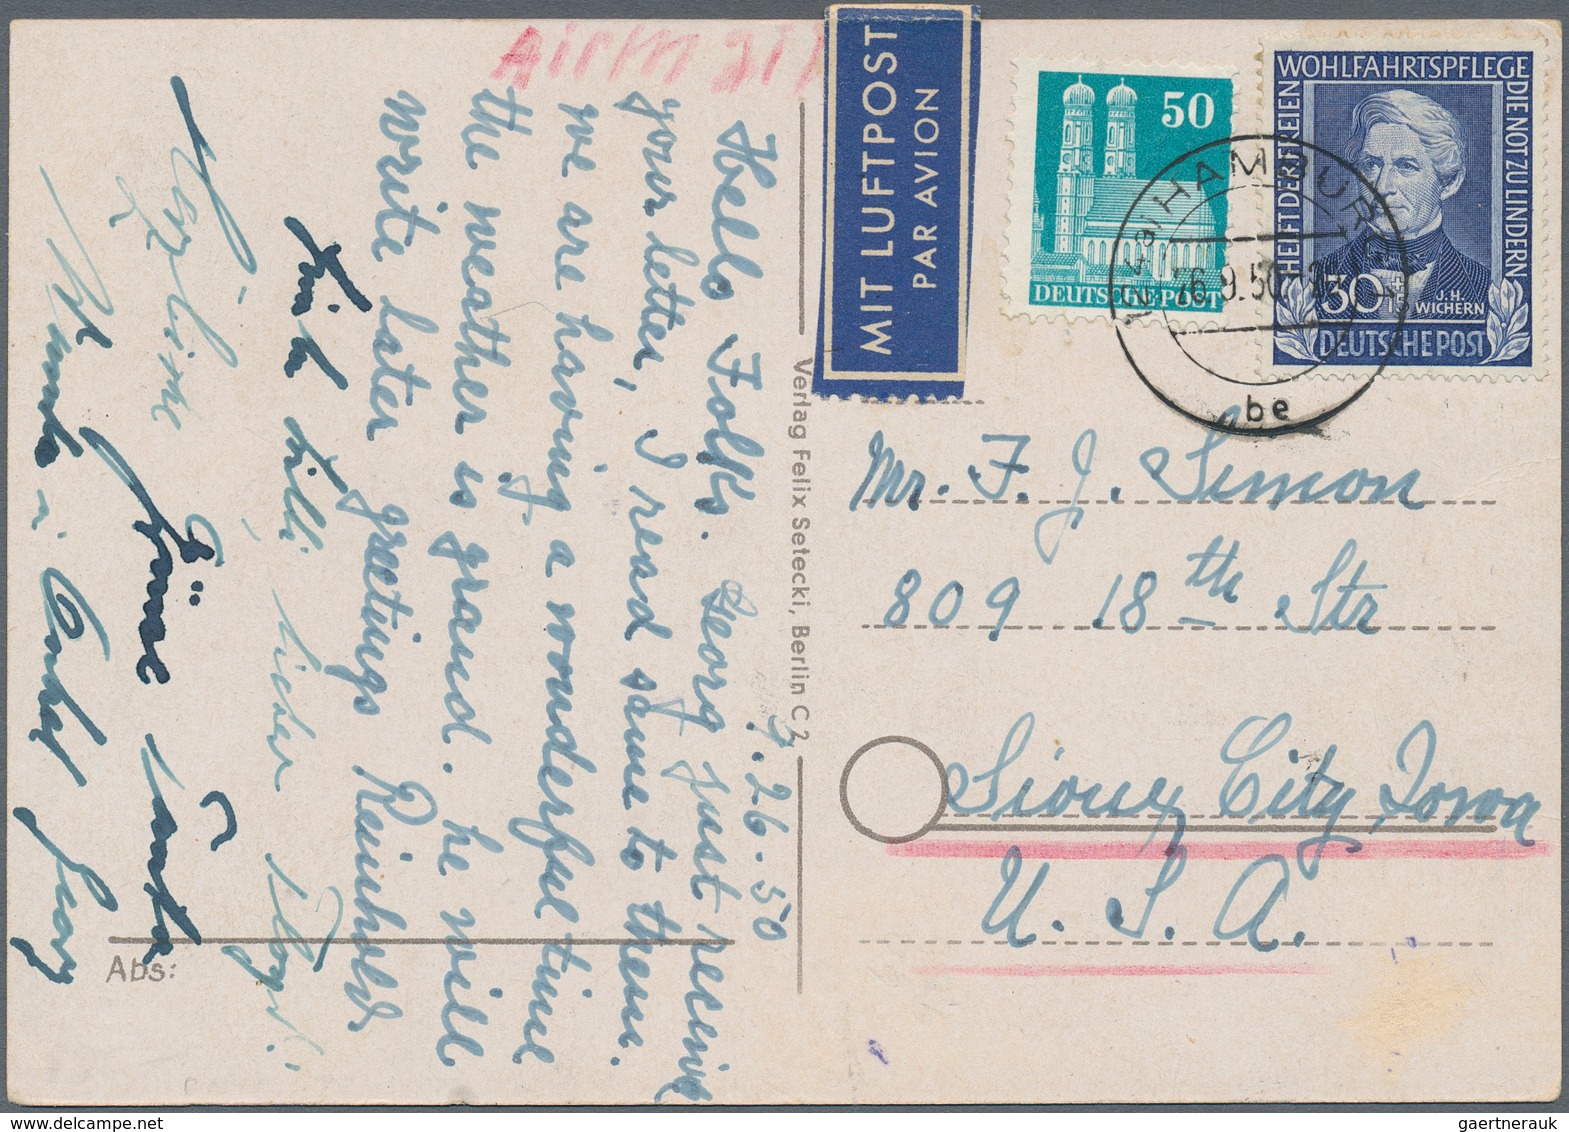 Airmail
MIT LUFTPOST
PAR AVION
50
DEUTSCHE POST
WOHLFAHRTSPFLEGE
HELFT DER FREIEN
DIE NOT ZU LINDERN
30
J.H.
WICHERN
DEUTSCHE POST
HAMBURG
26.9.50
be
9.26-50
Hello Folks. Georg just receiving
your letter, I read same to them.
we are having a wonderful time
the weather is grand. he will
write later greetings Reinhold
Verlag Felix Setecki, Berlin C 2
Abs:
Mr. F. J. Simon
809 18th Str
Sioux City, Iowa
U. S. A.
Herzliche Grüße
gaertnerauk